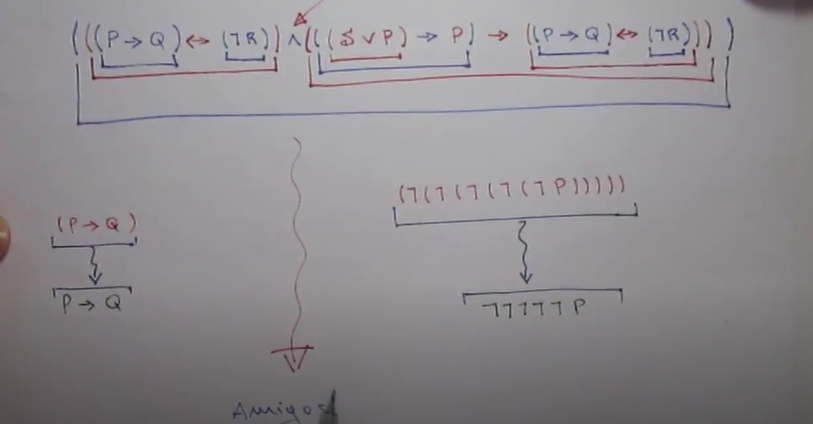 (((P→Q)↔(¬R))∧(((S∨P)→P)→((P→Q)↔(¬R))))
(¬(¬(¬(¬(¬P)))))
(P→Q)
P→Q
¬¬¬¬¬P
Amigos